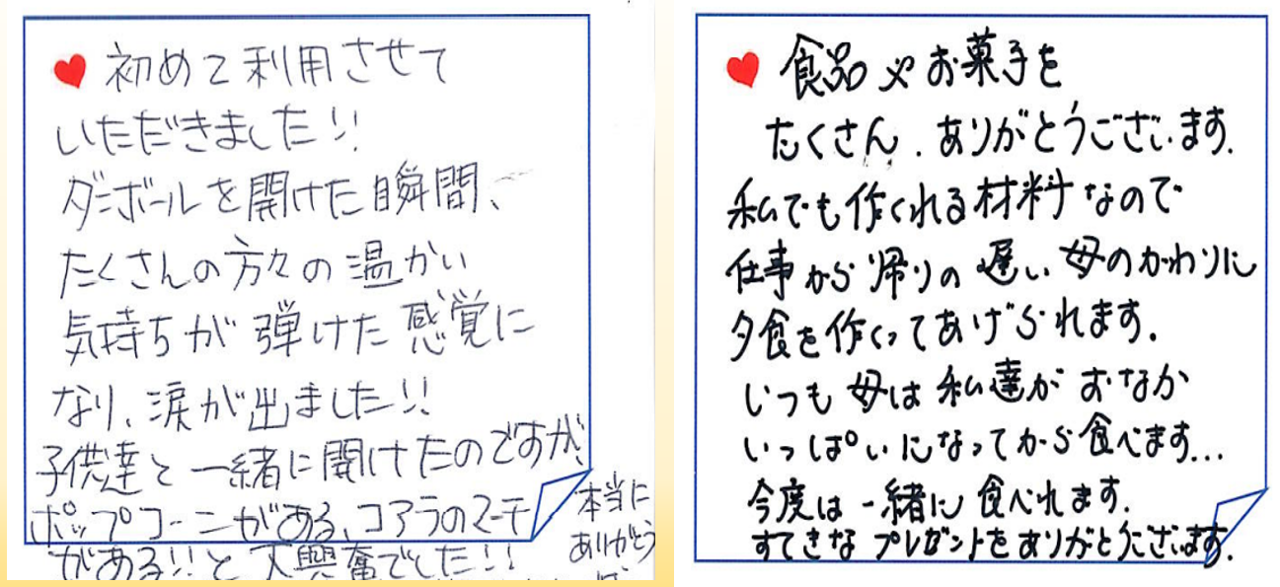 初めて利用させて
いただきました!!
ダンボールを開けた瞬間、
たくさんの方々の温かい
気持ちが弾けた感覚に
なり、涙が出ました!!
子供達と一緒に開けたのですが、
ポップコーンがある、コアラのマーチ
がある!!と大興奮でした!!
本当に
ありがとう
食品やお菓子を
たくさん、ありがとうございます。
私でも作くれる材料なので
仕事から帰りの遅い母のかわりに
夕食を作くってあげられます。
いつも母は私達がおなか
いっぱいになってから食べます...
今度は一緒に食べれます。
すてきなプレゼントをありがとうございます。